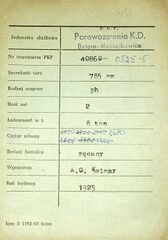 Jednostka służbowa
Parowozownia K.D.
Bytom-Maciejkowice
Nr inwentarza PKP 40860 0525-5
Szerokość toru 785 mm
Rodzaj wagonu ph
Ilość osi 2
Ładowność w t. 8 ton
Ciężar własny 2630
Rodzaj hamulca ręczny
Wytwórnia A.G. Weimar
Rok budowy 1925